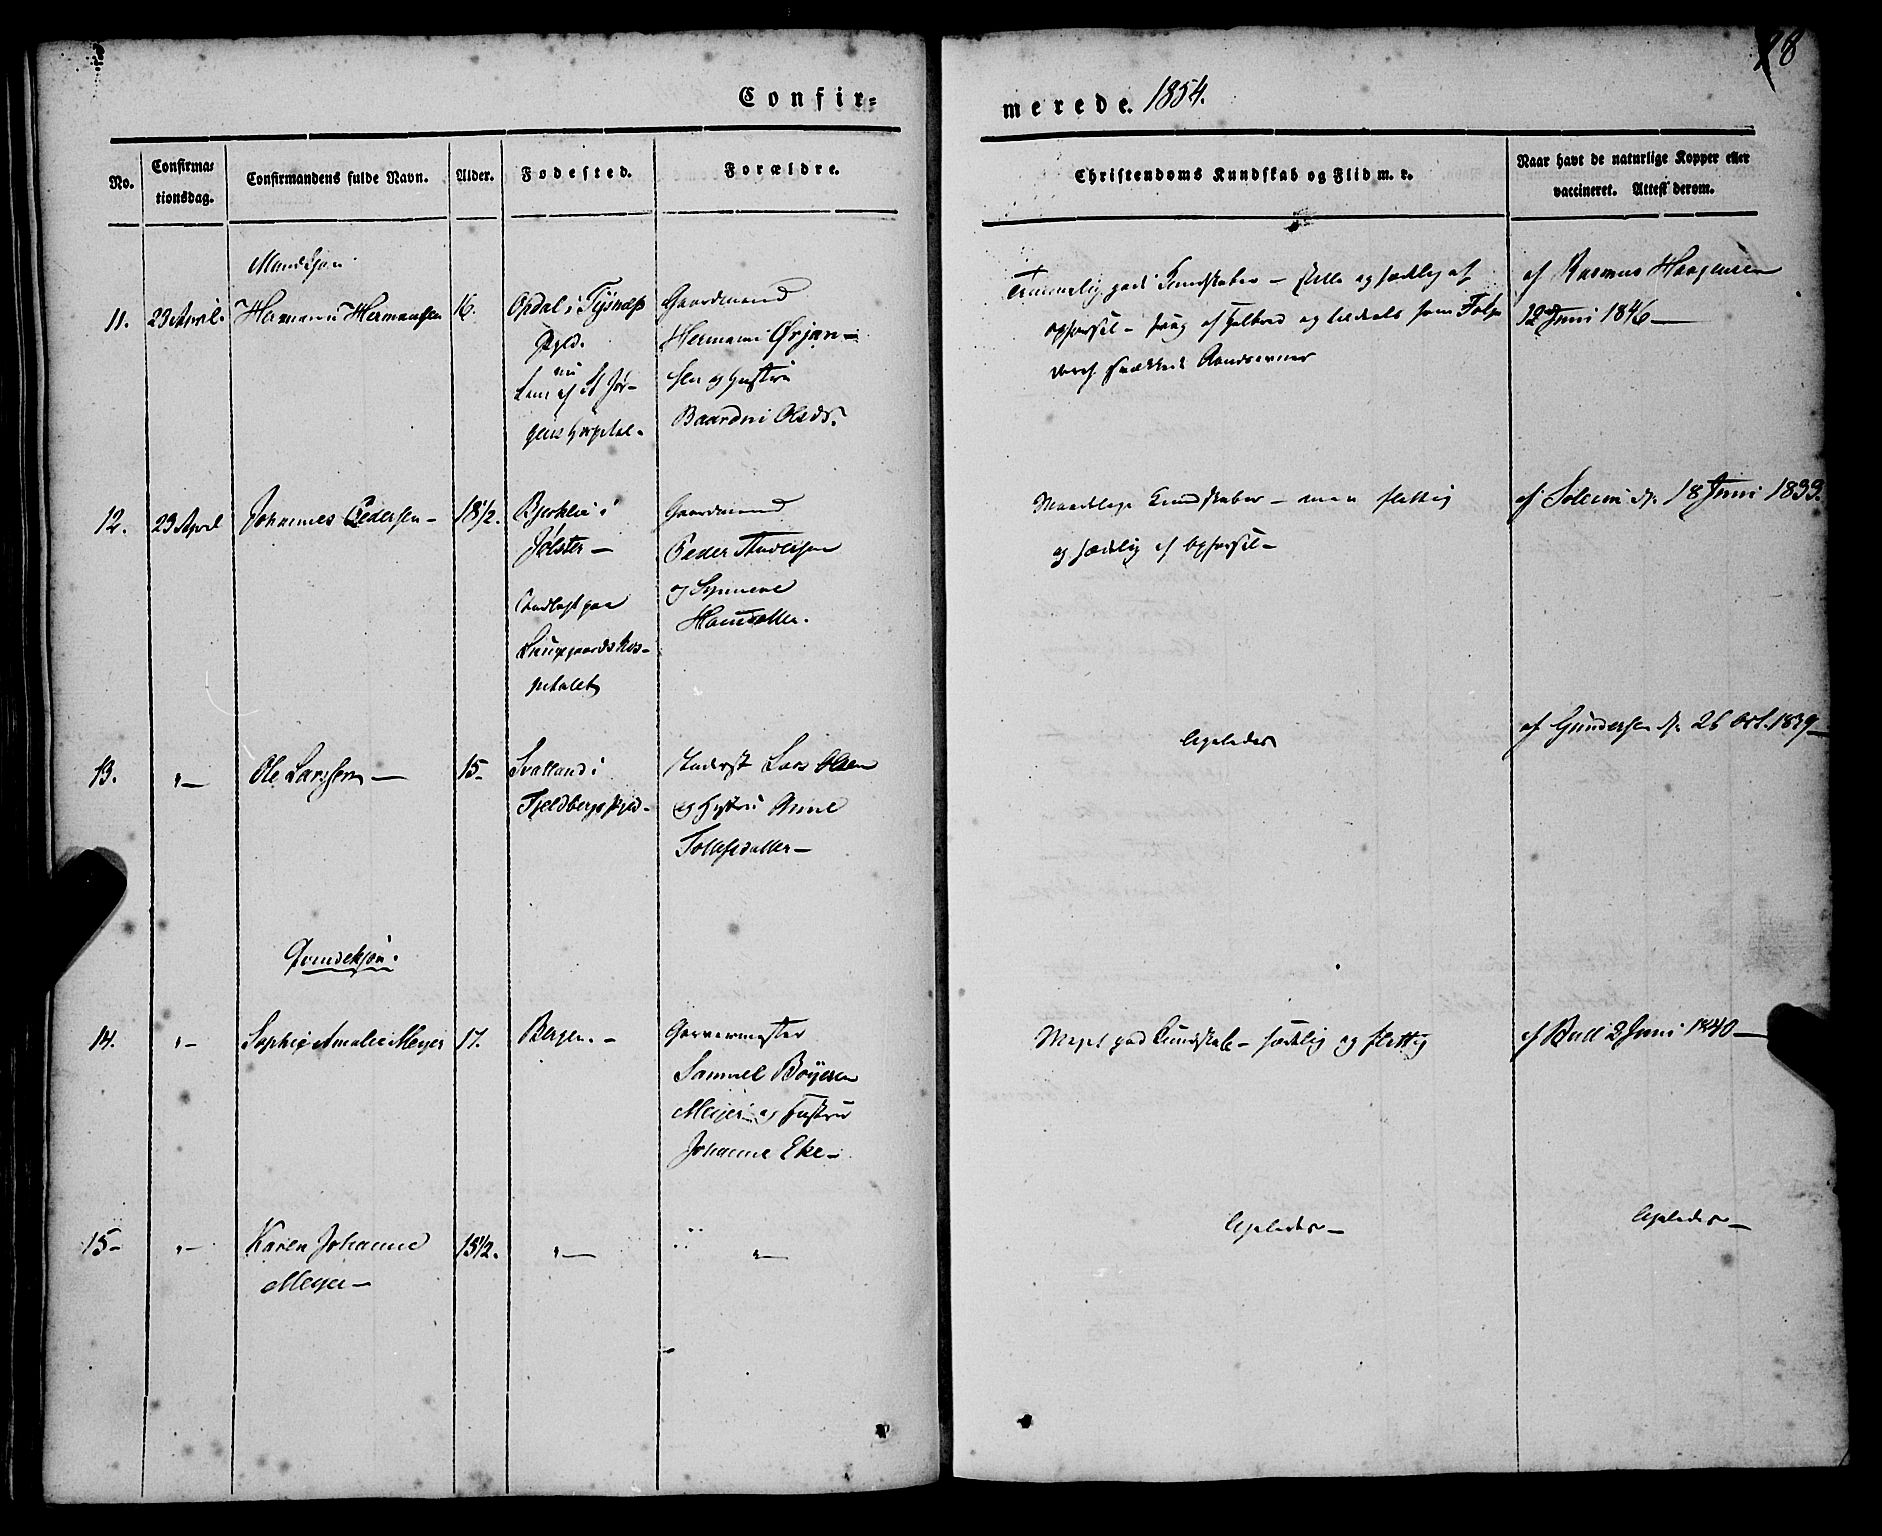 28
Confir-
merede. 1854.
No.
Confirma-
tionsdag.
Confirmandens fulde Navn.
Alder.
Fødested.
Forældre.
Christendoms Kundskab og Flid m. v.
Naar havt de naturlige Kopper eller
vaccineret. Attest derom.
Mandkjøn
11.
23 April.
Hermann Hermansen
16.
Opdal i Tysnæs
Pgld.
nu
Lem af St Jør-
gens Hospital.
Gaardmand
Hermann Ørjan-
sen og Hustru
Olsdr.
Temmelig god Kundskaber - stille og sædelig af
Opførsel -
af Rasmus Haagensen
12 Juni 1846 -
12.
23 April
Johannes Pedersen -
18 1/2.
i
Jølster -
Indlagt paa
Lungegaardshos-
pitalet
Gaardmand
Peder Andersen
og Synneve
Maadelige Kundskaber - men flittig
og sædelig af Opførsel -
af 18 Juni 1839.
13.
"-
Ole Larssen -
15-
i
Fjeldbergs Pgld -
Lars Olsen
og Hustru Anne
-
ligeledes
af Gundersen d. 26 Oct. 1839 -
Qvindekjøn.
14.
"-
Sophie Amalie Meyer
17.
Bergen. -
Garvermester
Samuel Bøyesen
Meyer og Hustru
Johanne Eke -
Meget god Kundskab - sædelig og flittig
af Bull 2 Juni 1840 -
15-
"-
Karen Johanne
Meyer -
15 1/2.
"-
"-
ligeledes -
ligeledes -